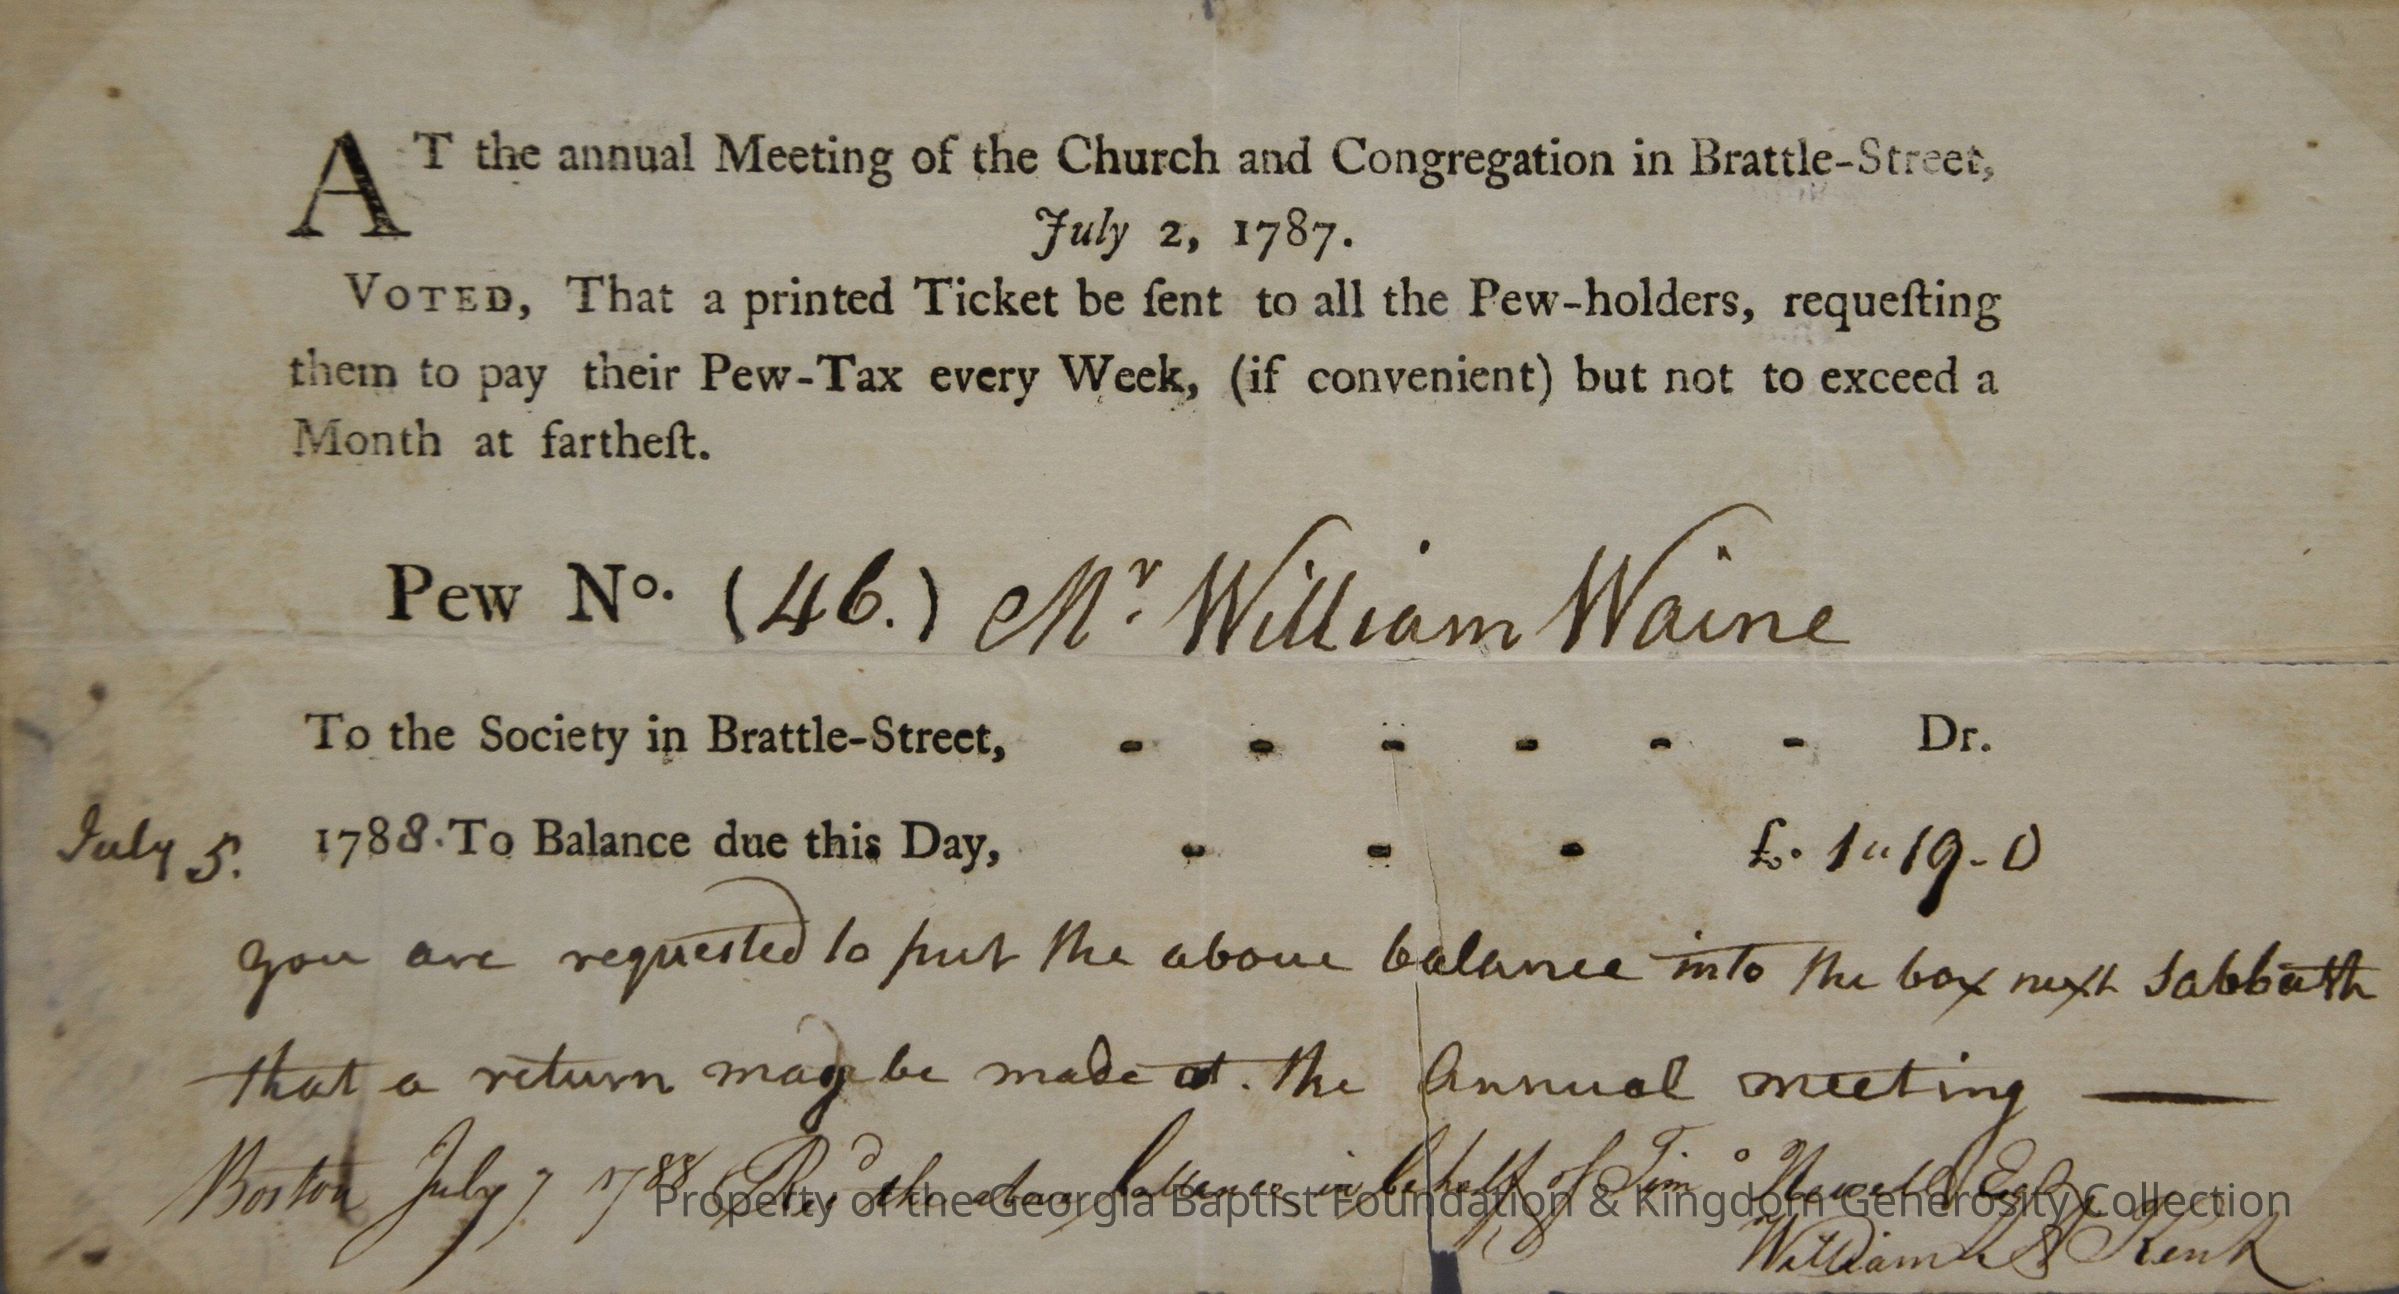 AT the annual Meeting of the Church and Congregation in Brattle-Street,
July 2, 1787.
VOTED, That a printed Ticket be ſent to all the Pew-holders, requeſting
them to pay their Pew-Tax every Week, (if convenient) but not to exceed a
Month at fartheſt.
Pew No. (46.) Mr William Waine
To the Society in Brattle-Street, - - - - - - Dr.
July 5. 1788. To Balance due this Day, - - - £. 1"19-0
you are requested to put the above balance into the box next Sabbath
that a return may be made at the Annual meeting —
Boston July 7 1788 Recd the above balance in behalf of Timo Newell Esqr
William Kent
Property of the Georgia Baptist Foundation & Kingdom Generosity Collection